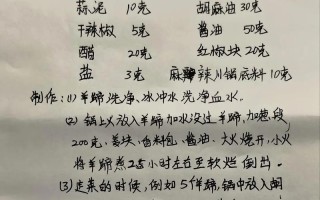 蒜泥 10克 胡麻油30克
干辣椒 5克 酱油 50克
醋 20克 红椒块 20克
盐 3克 麻辣川锅底料10克
制作:(1)羊蹄洗净、冰冲水洗净血水.
(2) 锅上火放入羊蹄加水没过羊蹄,加葱段
200克、姜块、香料包、酱油、大火烧开,小火
将羊蹄煮2.5小时左右至软烂倒出。
(3)走菜的时候,例如5个蹄,锅中放入